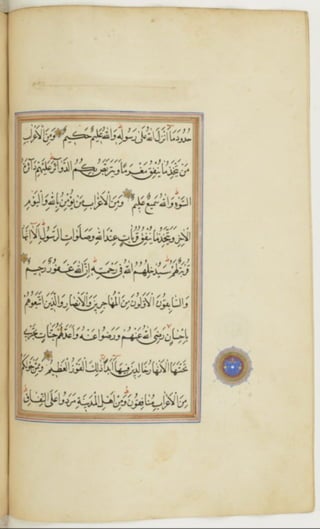 حدود ما انزل الله على رسوله والله عليم حكيم ومن الاعراب
من يتخذ ما ينفق مغرما ويتربص بكم الدوائر عليهم دائرة
السوء والله سميع عليم ومن الاعراب من يؤمن بالله واليوم
الاخر ويتخذ ما ينفق قربات عند الله وصلوات الرسول الا انها
قربة لهم سيدخلهم الله في رحمته ان الله غفور رحيم
والسابقون الاولون من المهاجرين والانصار والذين اتبعوهم
باحسان رضي الله عنهم ورضوا عنه واعد لهم جنات تجري
تحتها الانهار خالدين فيها ابدا ذلك الفوز العظيم وممن حولكم
من الاعراب منافقون ومن اهل المدينة مردوا على النفاق